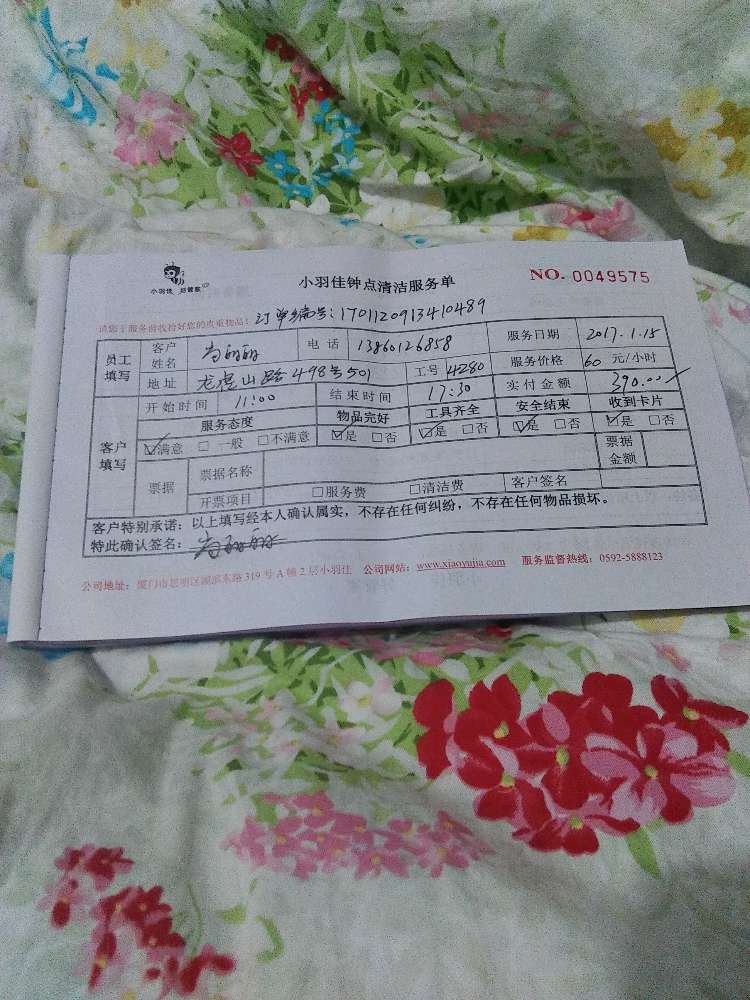 小羽佳 超管家
小羽佳钟点清洁服务单
NO. 0049575
请您于服务前收拾好您的贵重物品! 订单编号:1701120913410489
员工填写 客户姓名 尚丽丽 电话 13860126858 服务日期 2017.1.15
地址 龙虎山路498号501 工号 4280 服务价格 60 元/小时
开始时间 11:00 结束时间 17:30 实付金额 390.00
客户填写 服务态度 物品完好 工具齐全 安全结束 收到卡片
☑满意 □一般 □不满意 ☑是 □否 ☑是 □否 ☑是 □否 ☑是 □否
票据 票据名称 票据金额
开票项目 □服务费 □清洁费 客户签名
客户特别承诺:以上填写经本人确认属实,不存在任何纠纷,不存在任何物品损坏。
特此确认签名: 尚丽丽
公司地址:厦门市思明区湖滨东路319号A幢2层小羽佳 公司网站:www.xiaoyujia.com 服务监督热线:0592-5888123